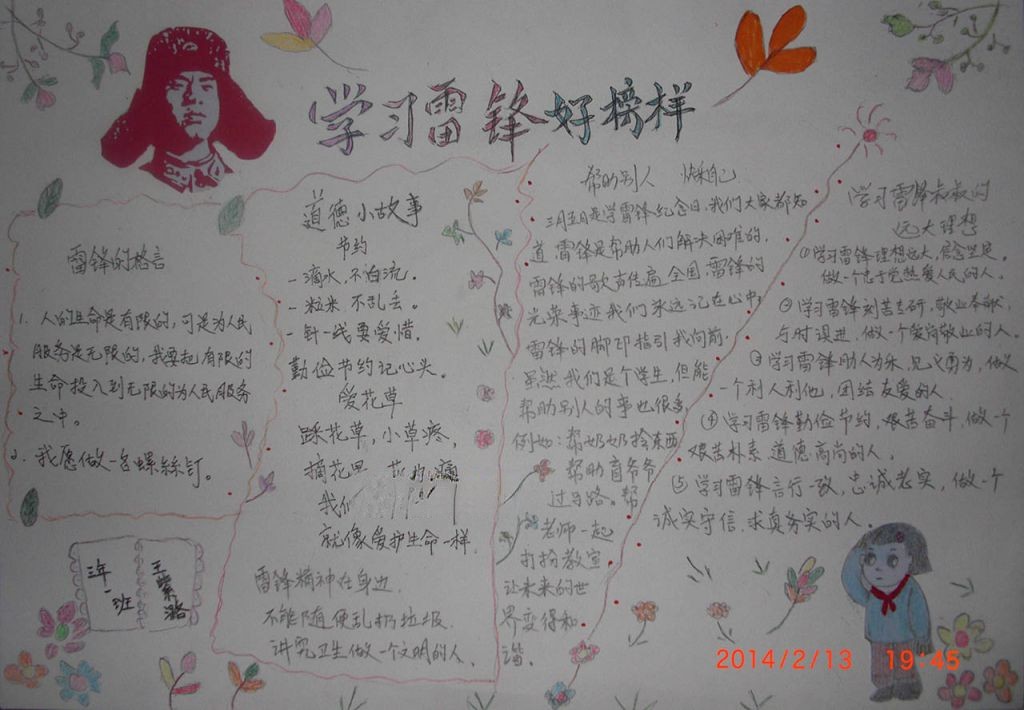 学习雷锋好榜样
雷锋的格言
1. 人的生命是有限的,可是为人民
服务是无限的,我要把有限的
生命投入到无限的为人民服务
之中。
2. 我愿做一名螺丝钉。
三年一班
王紫潞
道德小故事
节约
- 滴水,不白流。
- 粒米 不乱丢。
- 针一线要爱惜。
勤俭节约记心头。
爱花草
踩花草,小草疼,
摘花果 花
我们
就像爱护生命一样。
雷锋精神在身边
不能随便乱扔垃圾
讲究卫生做一个文明的人。
帮助别人 快乐自己
三月五日是学雷锋纪念日,我们大家都知
道,雷锋是帮助人们解决困难的,
雷锋的歌声传遍全国,雷锋的
光荣事迹我们永远记在心中,
雷锋的脚印指引我向前。
虽然我们是个学生,但能
帮助别人的事也很多,
例如:帮奶奶拎东西
帮助盲爷爷
过马路。帮
老师一起
打扮教室
让未来的世
界变得和
谐。
学习雷锋叔叔的
远大理想
①学习雷锋理想远大,信念坚定,
做一个忠于党热爱人民的人。
②学习雷锋刻苦专研,敬业奉献,
与时误进,做一个爱岗敬业的人。
③学习雷锋助人为乐,见义勇为,做
一个利人利他,团结友爱的人
④学习雷锋勤俭节约,艰苦奋斗,做一个
艰苦朴素 道德高尚的人,
⑤学习雷锋言行一致,忠诚老实,做一个
诚实守信,求真务实的人。
2014/2/13 19:45